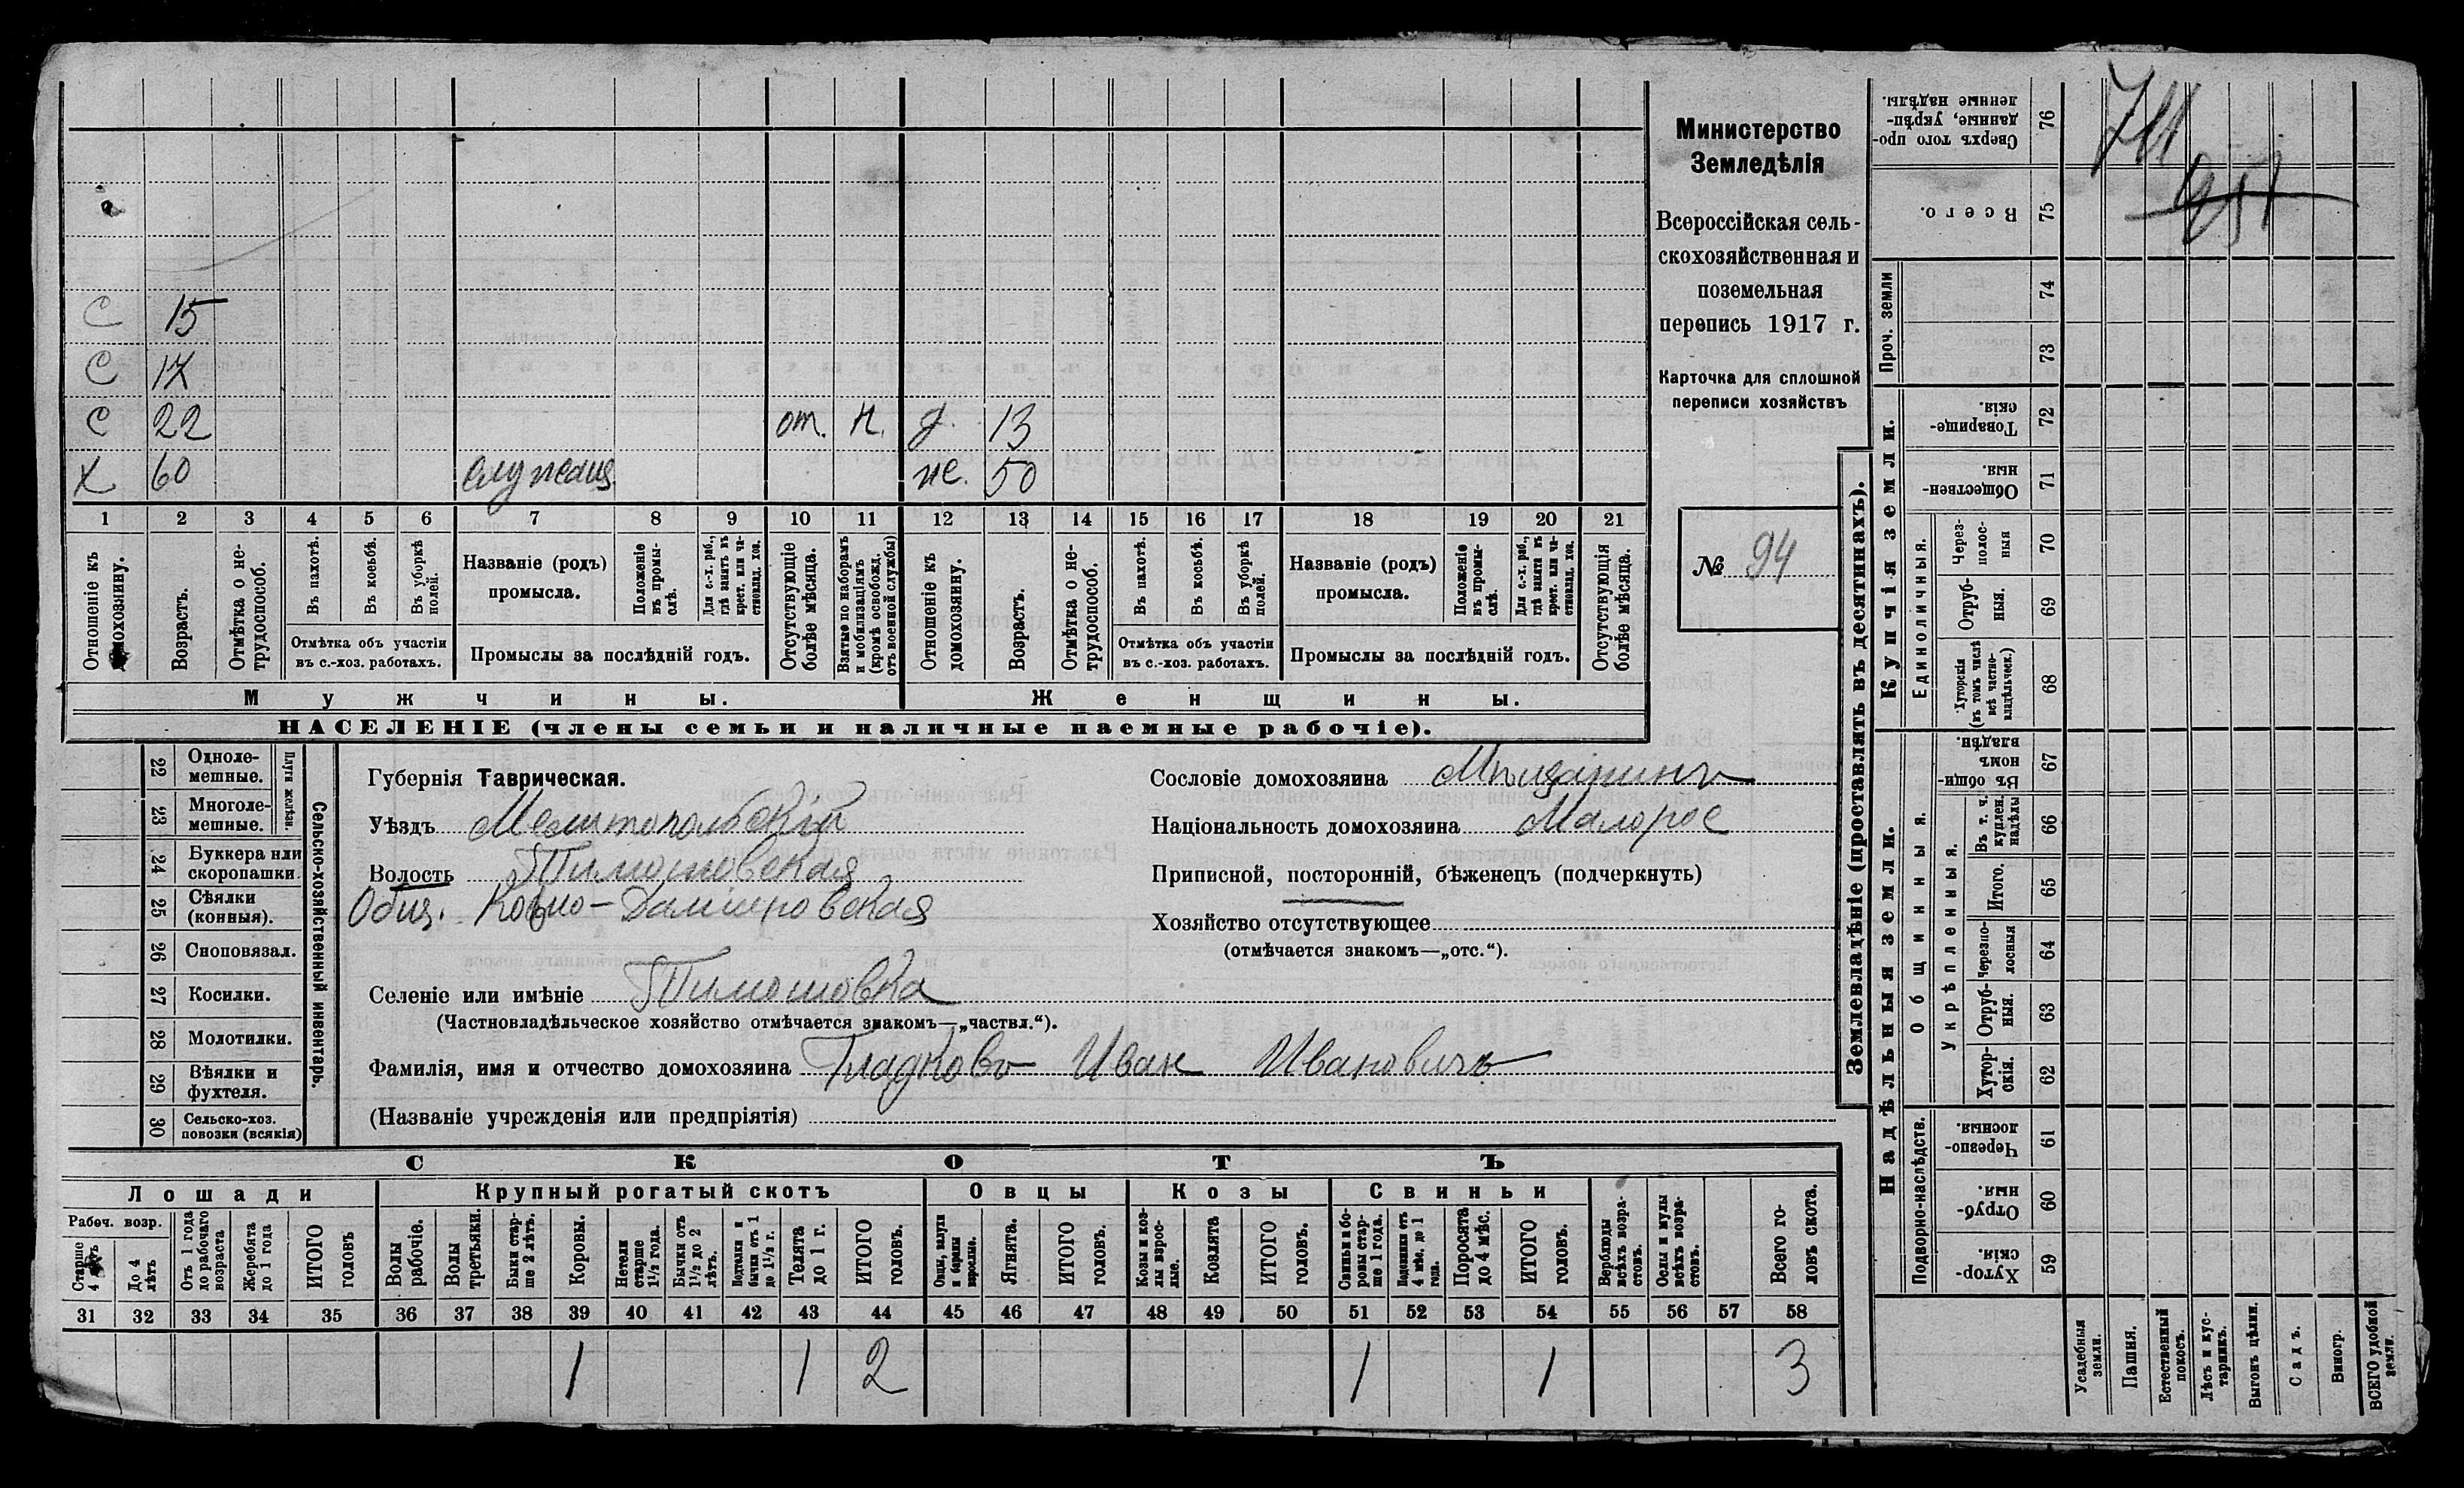 Министерство
Земледѣлія
Всероссійская сель-
скохозяйственная и
поземельная
перепись 1917 г.
Карточка для сплошной
переписи хозяйствъ
№ 94
С 15
С 17
С 22 от. н. д. 13
Х 60 служащ. же. 50
1 2 3 4 5 6 7 8 9 10 11 12 13 14 15 16 17 18 19 20 21
Отношеніе къ домохозяину.
Возрастъ.
Отмѣтка о не-
трудоспособ.
Въ пахотѣ.
Въ косьбѣ.
Въ уборкѣ
полей.
Отмѣтка объ участіи
въ с.-хоз. работахъ.
Названіе (родъ)
промысла.
Положеніе
въ промы-
слѣ.
Для с.-х. раб.,
гдѣ занятъ въ
крест. или ча-
стновлад. хоз.
Промыслы за послѣдній годъ.
Отсутствующіе
болѣе мѣсяца.
Взятые по наборамъ
и мобилизаціямъ
(кромѣ освобожд.
отъ военной службы)
Отношеніе къ
домохозяину.
Возрастъ.
Отмѣтка о не-
трудоспособ.
Въ пахотѣ.
Въ косьбѣ.
Въ уборкѣ
полей.
Отмѣтка объ участіи
въ с.-хоз. работахъ.
Названіе (родъ)
промысла.
Положеніе
въ промы-
слѣ.
Для с.-х. раб.,
гдѣ занята въ
крест. или ча-
стновлад. хоз.
Промыслы за послѣдній годъ.
Отсутствующія
болѣе мѣсяца.
Мужчины.
Женщины.
НАСЕЛЕНІЕ (члены семьи и наличные наемные рабочіе).
22 Одноле-
мешные.
23 Многоле-
мешные.
Плуги желѣзн.
24 Буккера или
скоропашки.
25 Сѣялки
(конныя).
26 Сноповязал.
27 Косилки.
28 Молотилки.
29 Вѣялки и
фухтеля.
30 Сельско-хоз.
повозки (всякія)
Сельско-хозяйственный инвентарь.
Губернія Таврическая.
Уѣздъ Мелитопольскій
Волость Тимошовская
Общ.
Селеніе или имѣніе Тимошовка
(Частновладѣльческое хозяйство отмѣчается знакомъ—„частвл.“).
Фамилія, имя и отчество домохозяина Гладковъ Иван Ивановичъ
(Названіе учрежденія или предпріятія)
Сословіе домохозяина Мѣщанинъ
Національность домохозяина Малорос
Приписной, посторонній, бѣженецъ (подчеркнуть)
Хозяйство отсутствующее
(отмѣчается знакомъ—„отс.“).
СКОТЪ
Лошади
Крупный рогатый скотъ
Овцы
Козы
Свиньи
Рабоч. возр.
Старше
4 лѣтъ
До 4
лѣтъ
Отъ 1 года
до рабочаго
возраста
Жеребята
до 1 года
ИТОГО
головъ
Волы
рабочіе.
Волы
третьяки.
Быки стар-
ше 2 лѣтъ.
Коровы.
Нетели
старше
1½ года.
Бычки отъ
1½ до 2
лѣтъ.
бычки отъ 1
до 1½ г.
Телята
до 1 г.
ИТОГО
головъ.
Овцы, валухи
и бараны
взрослые.
Ягнята.
ИТОГО
головъ.
Козы и коз-
лы взрос-
лые.
Козлята
ИТОГО
головъ.
Свиньи и бо-
ровы стар-
ше 1 года.
4 мѣс. до 1
года.
Поросята
до 4 мѣс.
ИТОГО
головъ.
Верблюды
всѣхъ возра-
стовъ.
Ослы и мулы
всѣхъ возра-
стовъ.
Всего го-
ловъ скота.
31 32 33 34 35 36 37 38 39 40 41 42 43 44 45 46 47 48 49 50 51 52 53 54 55 56 57 58
1 1 2 1 1 3
Землевладѣніе (проставлять въ десятинахъ).
Надѣльныя земли.
Купчія земли.
Проч. земли
Сверхъ того про-
данные, укрѣп-
ленные надѣлы.
76
Всего.
75
74
73
Товарище-
скія.
72
Обществен-
ныя.
71
Единоличныя.
Через-
полос-
ныя
70
Отруб-
ныя.
69
Хуторскія
(въ томъ числѣ
всѣ частно-
владѣльческ.)
68
Общинныя.
Въ общи-
номъ
владѣн.
67
Укрѣпленныя.
Въ т. ч.
куплен.
надѣлы
66
Итого.
65
Черезпо-
лосныя
64
Отруб-
ныя.
63
Хутор-
скія.
62
Подворно-наслѣдств.
Черезпо-
лосныя.
61
Отруб-
ныя.
60
Хутор-
скія.
59
Усадебныя
земли.
Пашня.
Естественный
покосъ.
Лѣсъ и кус-
тарникъ.
Выгонъ цѣлин.
Садъ.
Виногр.
ВСЕГО удобной
земли.